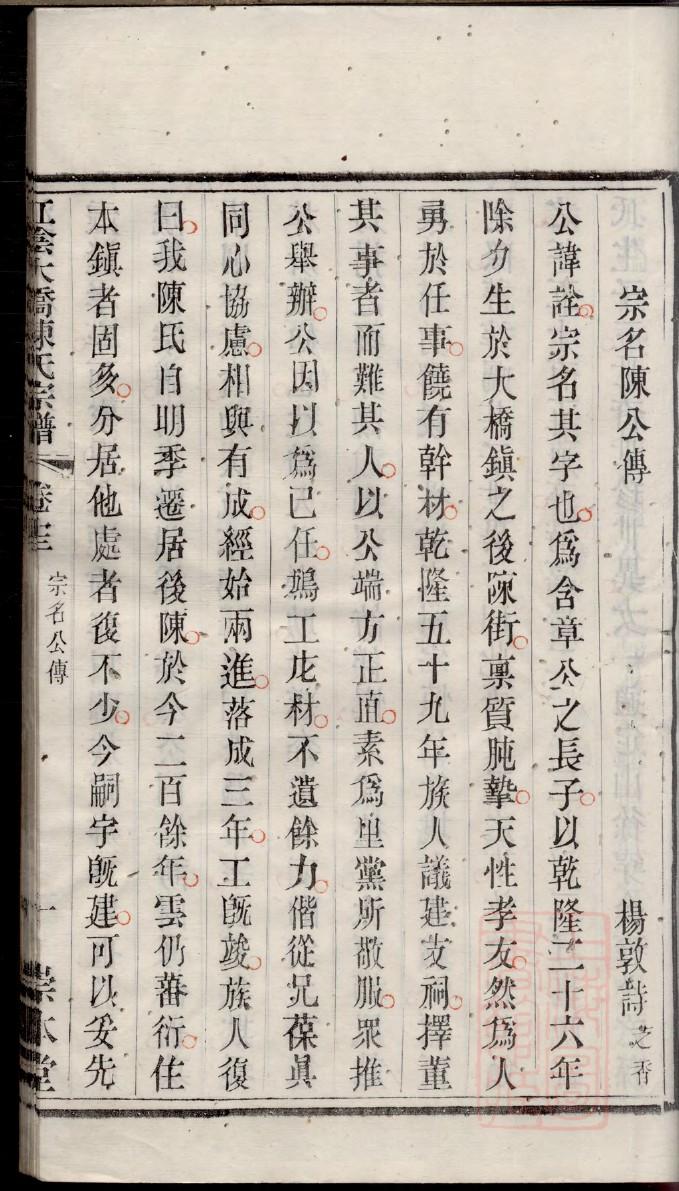 宗名陳公傳 楊敦詩芝香
公諱詮宗名其字也爲含章公之長子以乾隆二十六年
除夕生於大橋鎮之後陳街稟質肫摯天性孝友然爲人
勇於任事饒有幹材乾隆五十九年族人議建支祠擇董
其事者而難其人以公端方正直素爲里黨所敬服眾推
公舉辦公因以爲己任鳩工庀材不遺餘力偕從兄葆眞
同心協慮相與有成經始兩進落成三年工旣竣族人復
曰我陳氏自明季遷居後陳於今二百餘年雲仍蕃衍住
本鎮者固多分居他處者復不少今嗣宇旣建可以妥先
江陰大橋陳氏宗譜 卷十三 宗名公傳 一 崇本堂